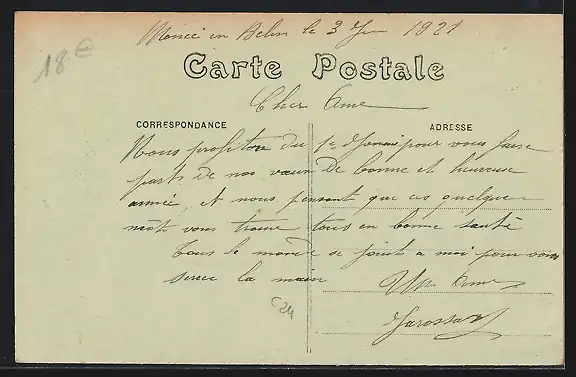 Moncé en Belin le 3 Jer 1921
18€
Carte Postale
Cher Ame
CORRESPONDANCE
ADRESSE
Nous profiton du 1e de Janvié pour vous faire
part de nos vœux de bonne et heureuse
année, et nous pensont que ces quelque
môt vous trouve tous en bonne santé
Tous le monde se joint a moi pour vous
serrer la main
Un Ame
C24
Jarossay